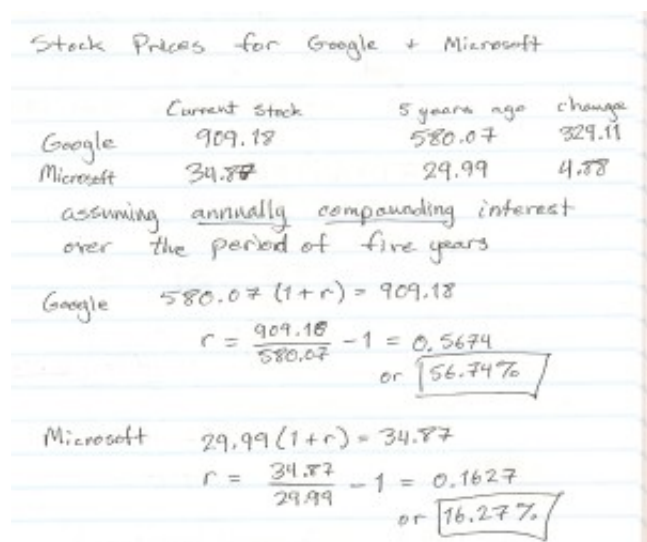 Stock Prices for Google + Microsoft
Current stock 5 years ago change
Google 909.18 580.07 329.11
Microsoft 34.87 29.99 4.88
assuming annually compounding interest
over the period of five years
Google 580.07 (1+r) = 909.18
r = 909.18 / 580.07 - 1 = 0.5674
or 56.74%
Microsoft 29.99 (1+r) = 34.87
r = 34.87 / 29.99 - 1 = 0.1627
or 16.27%